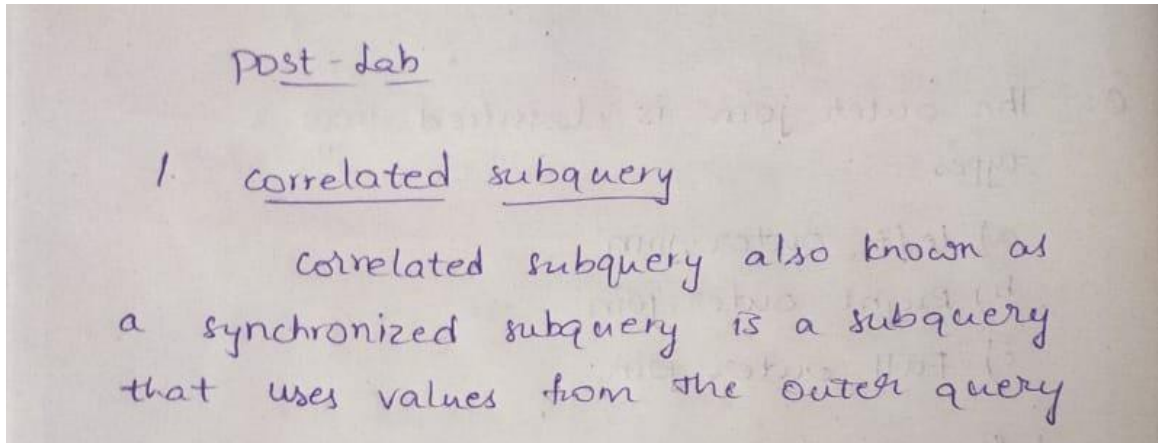 Post-Lab
1. correlated subquery
correlated subquery also known as
a synchronized subquery is a subquery
that uses values from the outer query